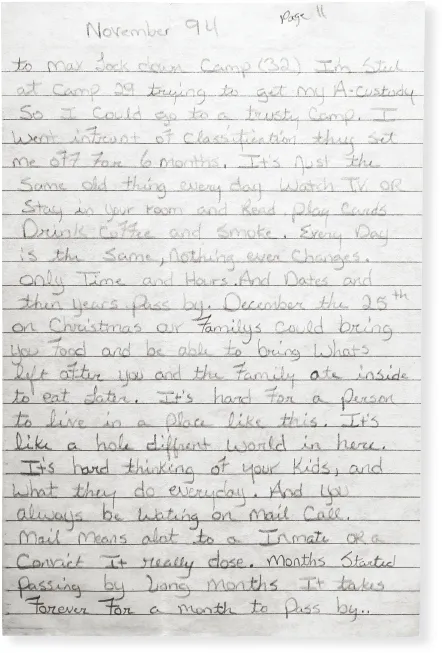 November 94
Page 11
to Max Lock down Camp (32) I'm Still
at Camp 29 trying to get my A-custody
So I Could go to a trusty Camp. I
Went infront of Classification they set
me off For 6 months. It's Just the
Same old thing every day Watch TV OR
Stay in your room and Read Play Cards
Drink Coffee and Smoke. Every Day
is the Same, Nothing ever Changes.
only Time and Hours. And Dates and
then years Pass by. December the 25th
on Christmas our Familys Could bring
you Food and be able to bring Whats
left after you and the Family ate inside
to eat Later. It's hard For a person
to live in a Place like this. It's
like a hole diffrent World in here.
It's hard thinking of your Kids, and
What they do everyday. And you
always be Wating on Mail Call.
Mail Means alot to a Inmate OR a
Convict It really dose. Months Started
Passing by Long Months It takes
Forever For a month to Pass by..